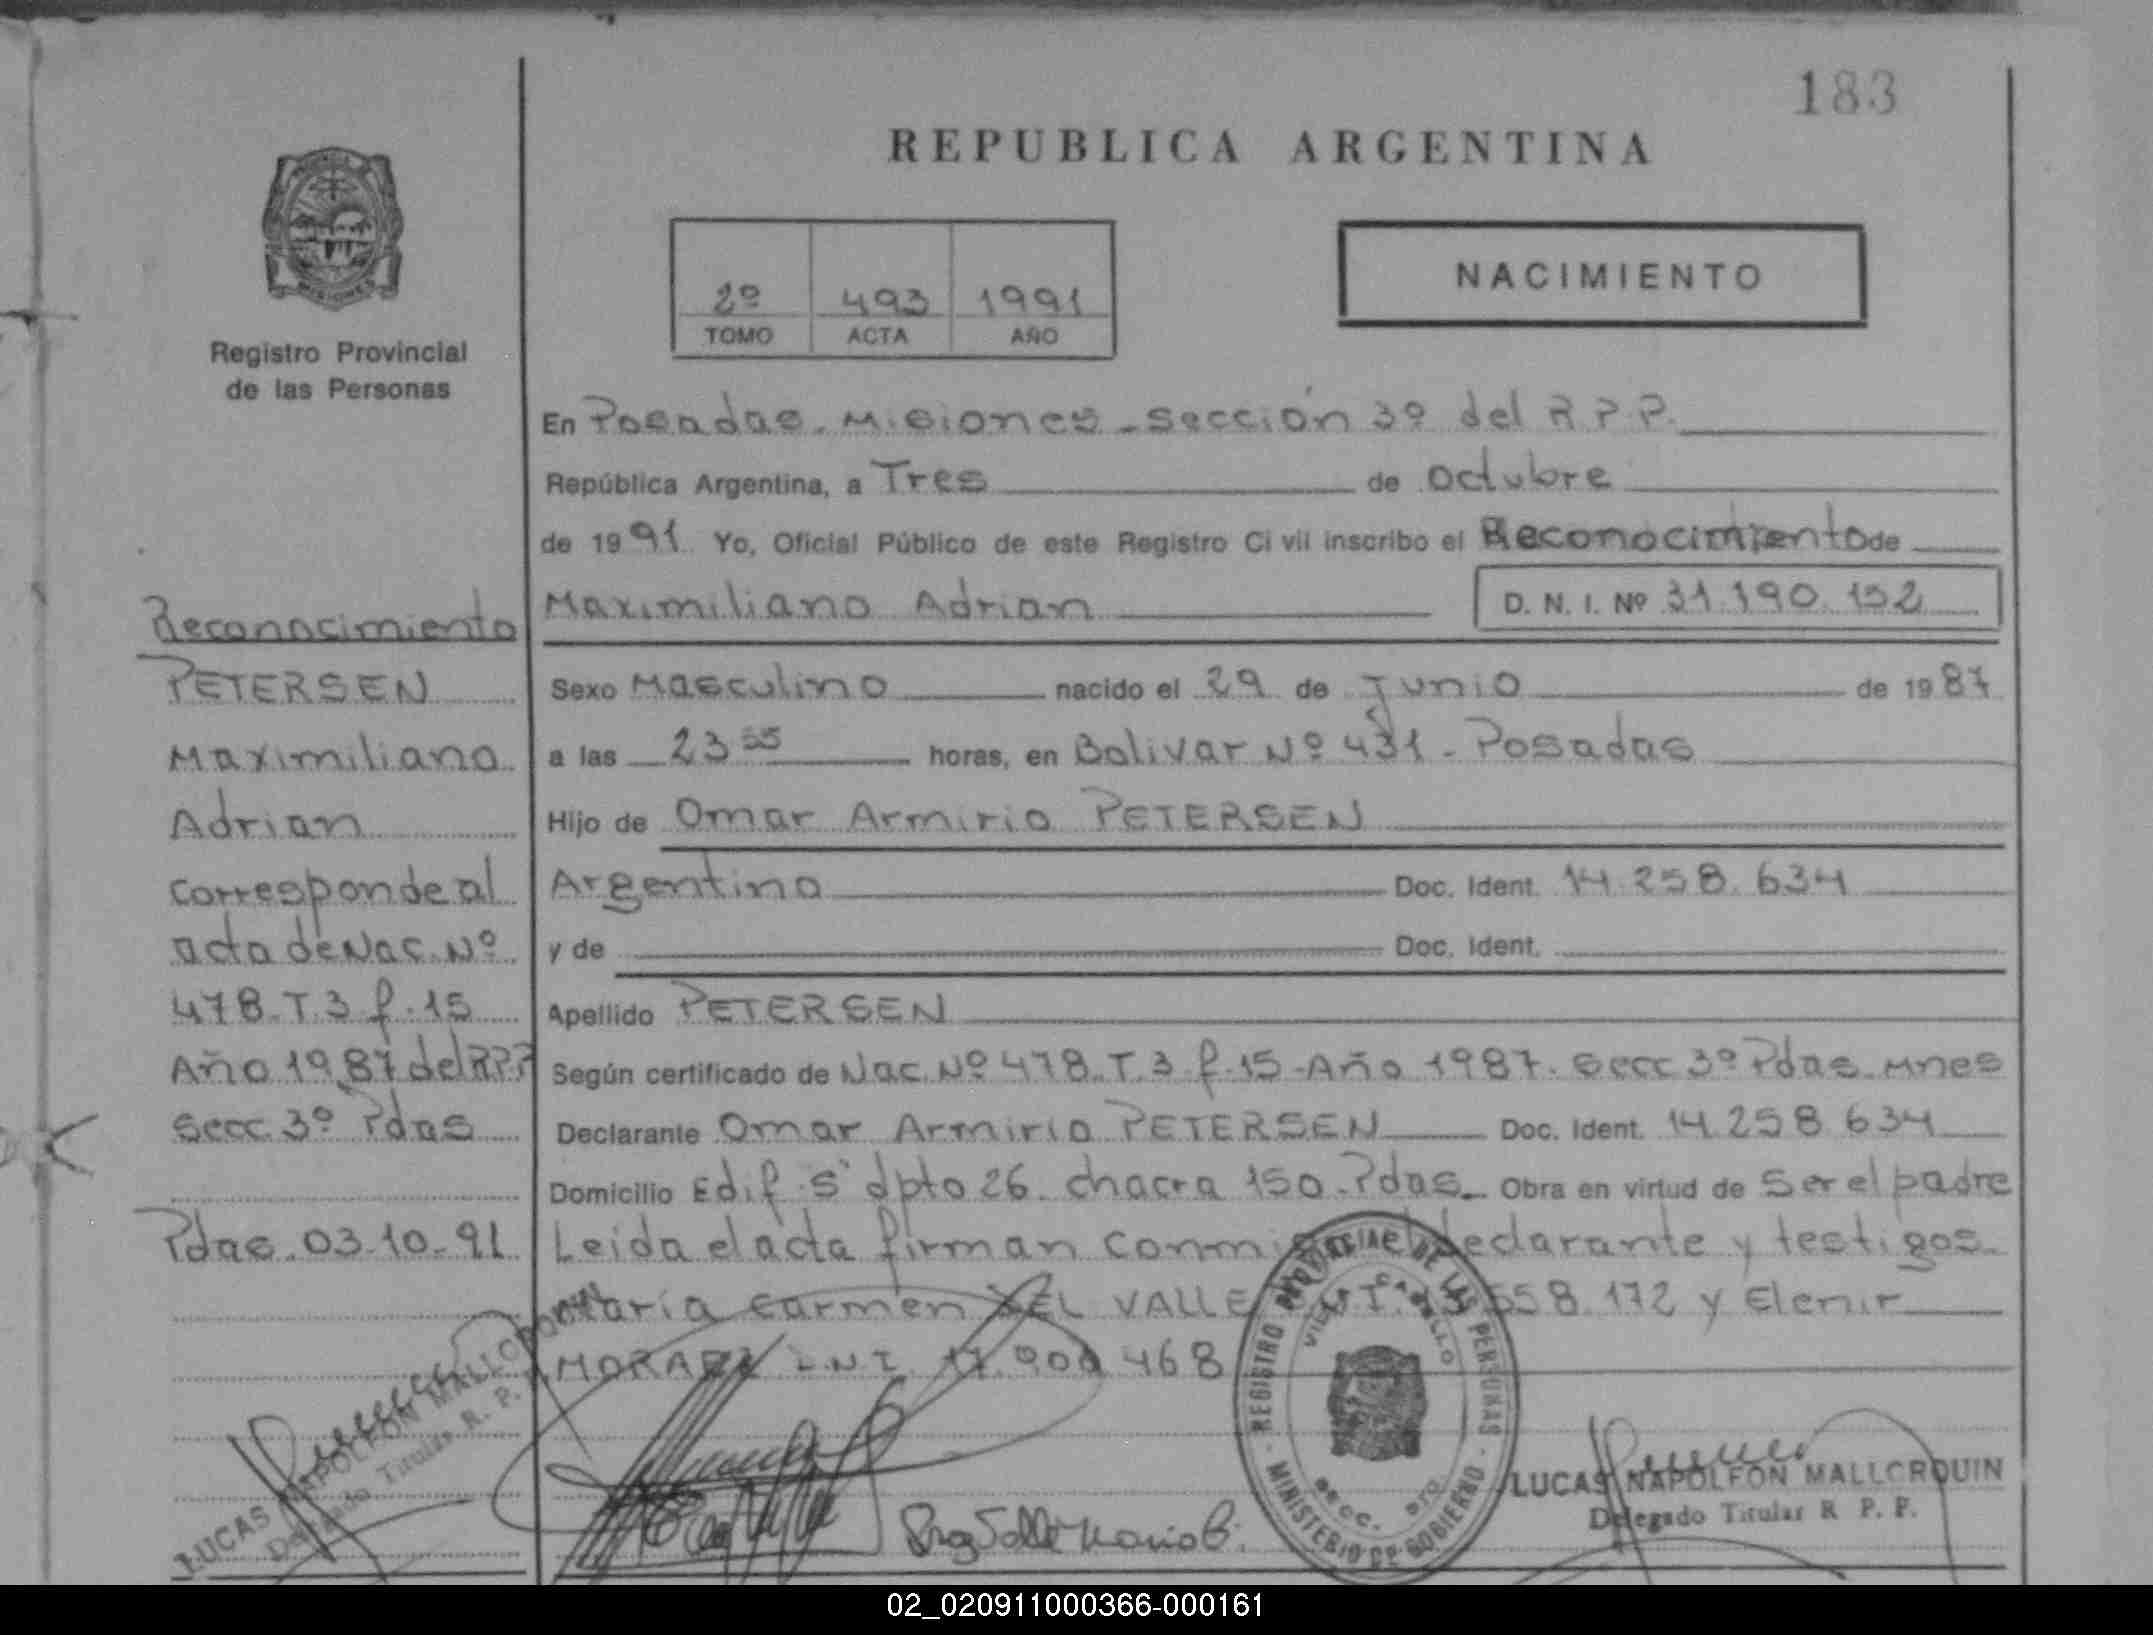 183
REPUBLICA ARGENTINA
MISIONES
Registro Provincial
de las Personas
2º 493 1991
TOMO ACTA AÑO
NACIMIENTO
En Posadas. Misiones - Sección 3º del R.P.P.
República Argentina, a Tres de octubre
de 1991 Yo, Oficial Público de este Registro Civil inscribo el Reconocimiento de
Maximiliano Adrian D. N. I. Nº 31.190.152
Sexo Masculino nacido el 29 de Junio de 1987
a las 23 55 horas, en Bolivar Nº 431 - Posadas
Hijo de Omar Armirio PETERSEN
Argentino Doc. Ident. 14.258.634
y de Doc. Ident.
Apellido PETERSEN
Según certificado de Nac. Nº 478. T. 3 f. 15 - Año 1987. Secc 3º Pdas. Mnes
Declarante Omar Armirio PETERSEN Doc. Ident. 14.258.634
Domicilio Edif. 5 dpto 26. chacra 150. Pdas. Obra en virtud de Ser el padre
Leida el acta firman conmigo el declarante y testigos.
Maria Carmen DEL VALLE 558.172 y Elenir
L.N.I. 468
Reconocimiento
PETERSEN
Maximiliano
Adrian
Corresponde al
acta de Nac. Nº
478. T. 3 f. 15
Año 1987 del R.P.P
Secc. 3º Pdas
Pdas. 03-10-91
LUCAS NAPOLEON MALLORQUIN
Delegado Titular R. P.
REGISTRO PROVINCIAL DE LAS PERSONAS
VILLA CABELLO
SECC. 3ra
MINISTERIO DE GOBIERNO
LUCAS NAPOLEON MALLORQUIN
Delegado Titular R. P. P.
02_020911000366-000161